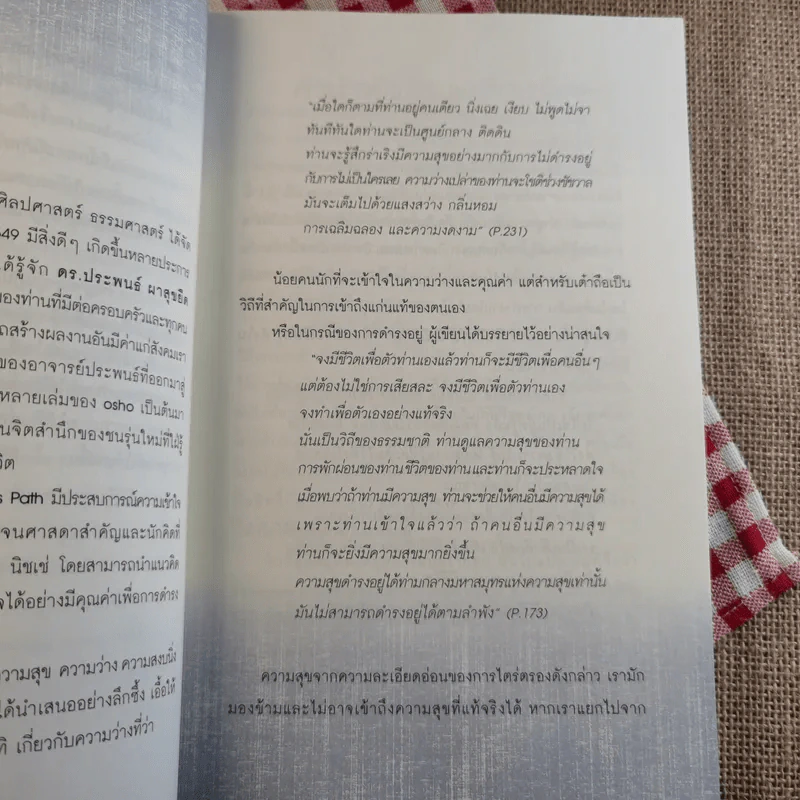 ศิลปศาสตร์ ธรรมศาสตร์ ได้จัด
49 มีสิ่งดีๆ เกิดขึ้นหลายประการ
ด้รู้จัก ดร.ประพนธ์ ผาสุขยืด
องท่านที่มีต่อครอบครัวและทุกคน
ถสร้างผลงานอันมีค่าแก่สังคมเรา
ของอาจารย์ประพนธ์ที่ออกมาสู่
หลายเล่มของ osho เป็นต้นมา
นจิตสำนึกของชนรุ่นใหม่ที่ไม่รู้
วิต
s Path มีประสบการณ์ความเข้าใจ
จนศาสดาสำคัญและนักคิดที่
นิชเช่ โดยสามารถนำแนวคิด
จได้อย่างมีคุณค่าเพื่อการดำรง
วามสุข ความว่าง ความสงบนิ่ง
ได้นำเสนออย่างลึกซึ้ง เอื้อให้
ทิ เกี่ยวกับความว่างที่ว่า
"เมื่อใดก็ตามที่ท่านอยู่คนเดียว นิ่งเฉย เงียบ ไม่พูดไม่จา
ทันทีทันใดท่านจะเป็นศูนย์กลาง ติดดิน
ท่านจะรู้สึกร่าเริงมีความสุขอย่างมากกับการไม่ดำรงอยู่
กับการไม่เป็นใครเลย ความว่างเปล่าของท่านจะโชติช่วงชัชวาล
มันจะเต็มไปด้วยแสงสว่าง กลิ่นหอม
การเฉลิมฉลอง และความงดงาม" (P.231)
น้อยคนนักที่จะเข้าใจในความว่างและคุณค่า แต่สำหรับเต๋าถือเป็น
วิถีที่สำคัญในการเข้าถึงแก่นแท้ของตนเอง
หรือในกรณีของการดำรงอยู่ ผู้เขียนได้บรรยายไว้อย่างน่าสนใจ
"จงมีชีวิตเพื่อตัวท่านเองแล้วท่านก็จะมีชีวิตเพื่อคนอื่นๆ
แต่ต้องไม่ใช่การเสียสละ จงมีชีวิตเพื่อตัวท่านเอง
จงทำเพื่อตัวเองอย่างแท้จริง
นั่นเป็นวิถีของธรรมชาติ ท่านดูแลความสุขของท่าน
การพักผ่อนของท่าน ชีวิตของท่านและท่านก็จะประหลาดใจ
เมื่อพบว่าถ้าท่านมีความสุข ท่านจะช่วยให้คนอื่นมีความสุขได้
เพราะท่านเข้าใจแล้วว่า ถ้าคนอื่นมีความสุข
ท่านก็จะยิ่งมีความสุขมากยิ่งขึ้น
ความสุขดำรงอยู่ได้ท่ามกลางมหาสมุทรแห่งความสุขเท่านั้น
มันไม่สามารถดำรงอยู่ได้ตามลำพัง" (P.173)
ความสุขจากความละเอียดอ่อนของการไตร่ตรองดังกล่าว เรามัก
มองข้ามและไม่อาจเข้าถึงความสุขที่แท้จริงได้ หากเราแยกไปจาก